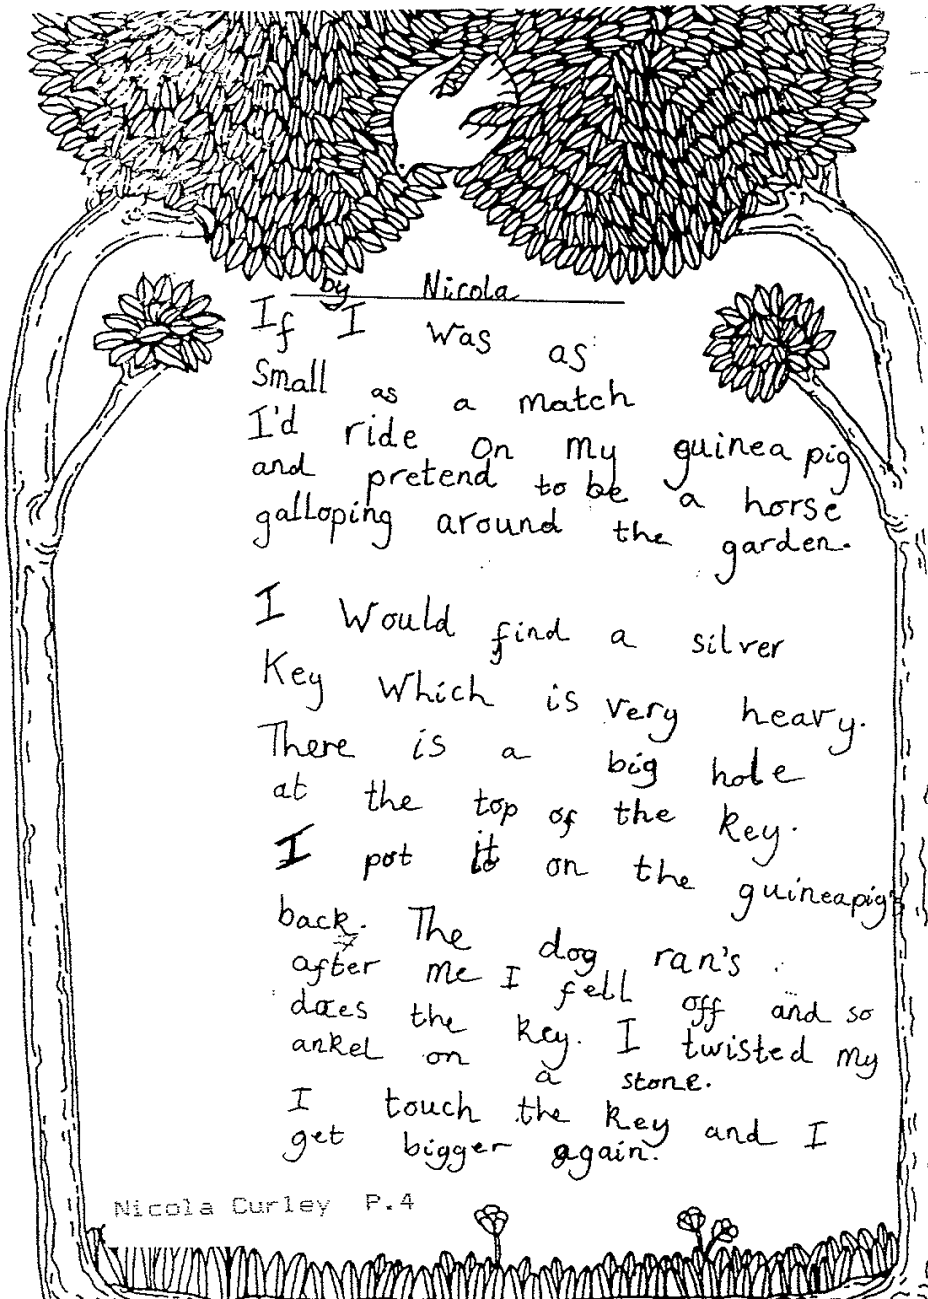 by Nicola
If I was as
Small as a match
I'd ride on my guinea pig
and pretend to be a horse
galloping around the garden.
I Would find a silver
Key Which is very heavy.
There is a big hole
at the top of the key.
I pot it on the guineapig's
back. The dog ran's
after me I fell off and so
does the key. I twisted my
ankel on a stone.
I touch the key and I
get bigger again.
Nicola Curley P.4